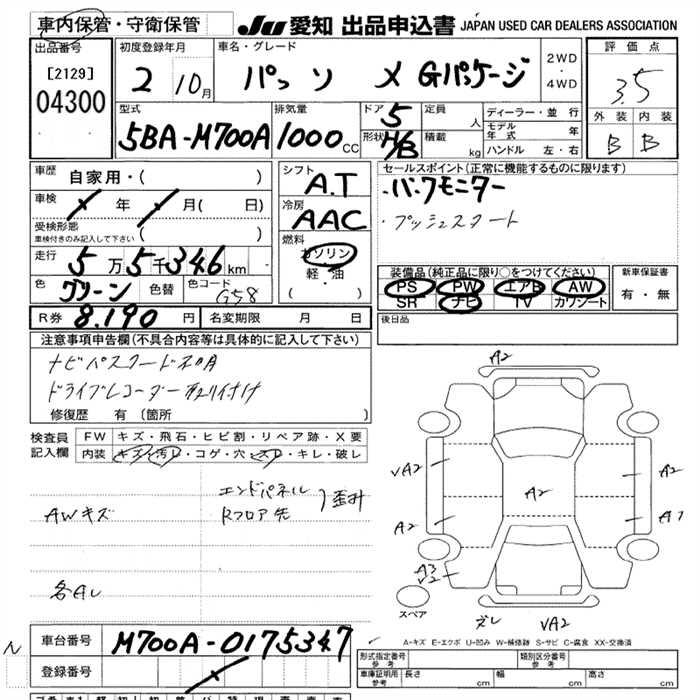 車内保管・守衛保管
JU 愛知 出品申込書 JAPAN USED CAR DEALERS ASSOCIATION
出品番号
[2129]
04300
初度登録年月
2 10月
車名・グレード
パッソ メ Gパッケージ
2WD
・
4WD
評価点
3.5
外装 内装
B B
型式
5BA-M700A
排気量
1000cc
ドア 5
形状 H/B
定員 人
積載 kg
ディーラー・並行
モデル年式 年
ハンドル 左・右
車歴 自家用・( )
車検 年 月( 日)
受検形態
車検付きのみ記入して下さい ( )
走行 5万5千346km
色 グリーン 色替 色コード G58
R券 8.190円 名変期限 月 日
シフト
A.T
冷房
AAC
燃料
ガソリン
軽・油
( )
セールスポイント(正常に機能するものに限ります)
・バックモニター
・プッシュスタート
装備品(純正品に限り○をつけてください)
PS PW エアB AW
SR ナビ TV カワシート
新車保証書
有・無
後日品
注意事項申告欄(不具合内容等は具体的に記入して下さい)
ナビパスワード不明
ドライブレコーダー取り付け
修復歴 有(箇所 )
検査員記入欄
FW キズ・飛石・ヒビ割・リペア跡・X要
内装 キズ・汚レ・コゲ・穴・スレ・キレ・破レ
エンドパネル
Rフロア先
歪み
AWキズ
各AL
A2
VA2
A2
A2
A2
A1
A3
スペア
ズレ
VA2
A-キズ E-エクボ U-凹み W-補修跡 S-サビ C-腐食 XX-交換済
N
車台番号 M700A-0175347
登録番号
形式指定番号
参考
類別区分番号
参考
車庫証明用
参考
長さ cm 幅 cm 高さ cm